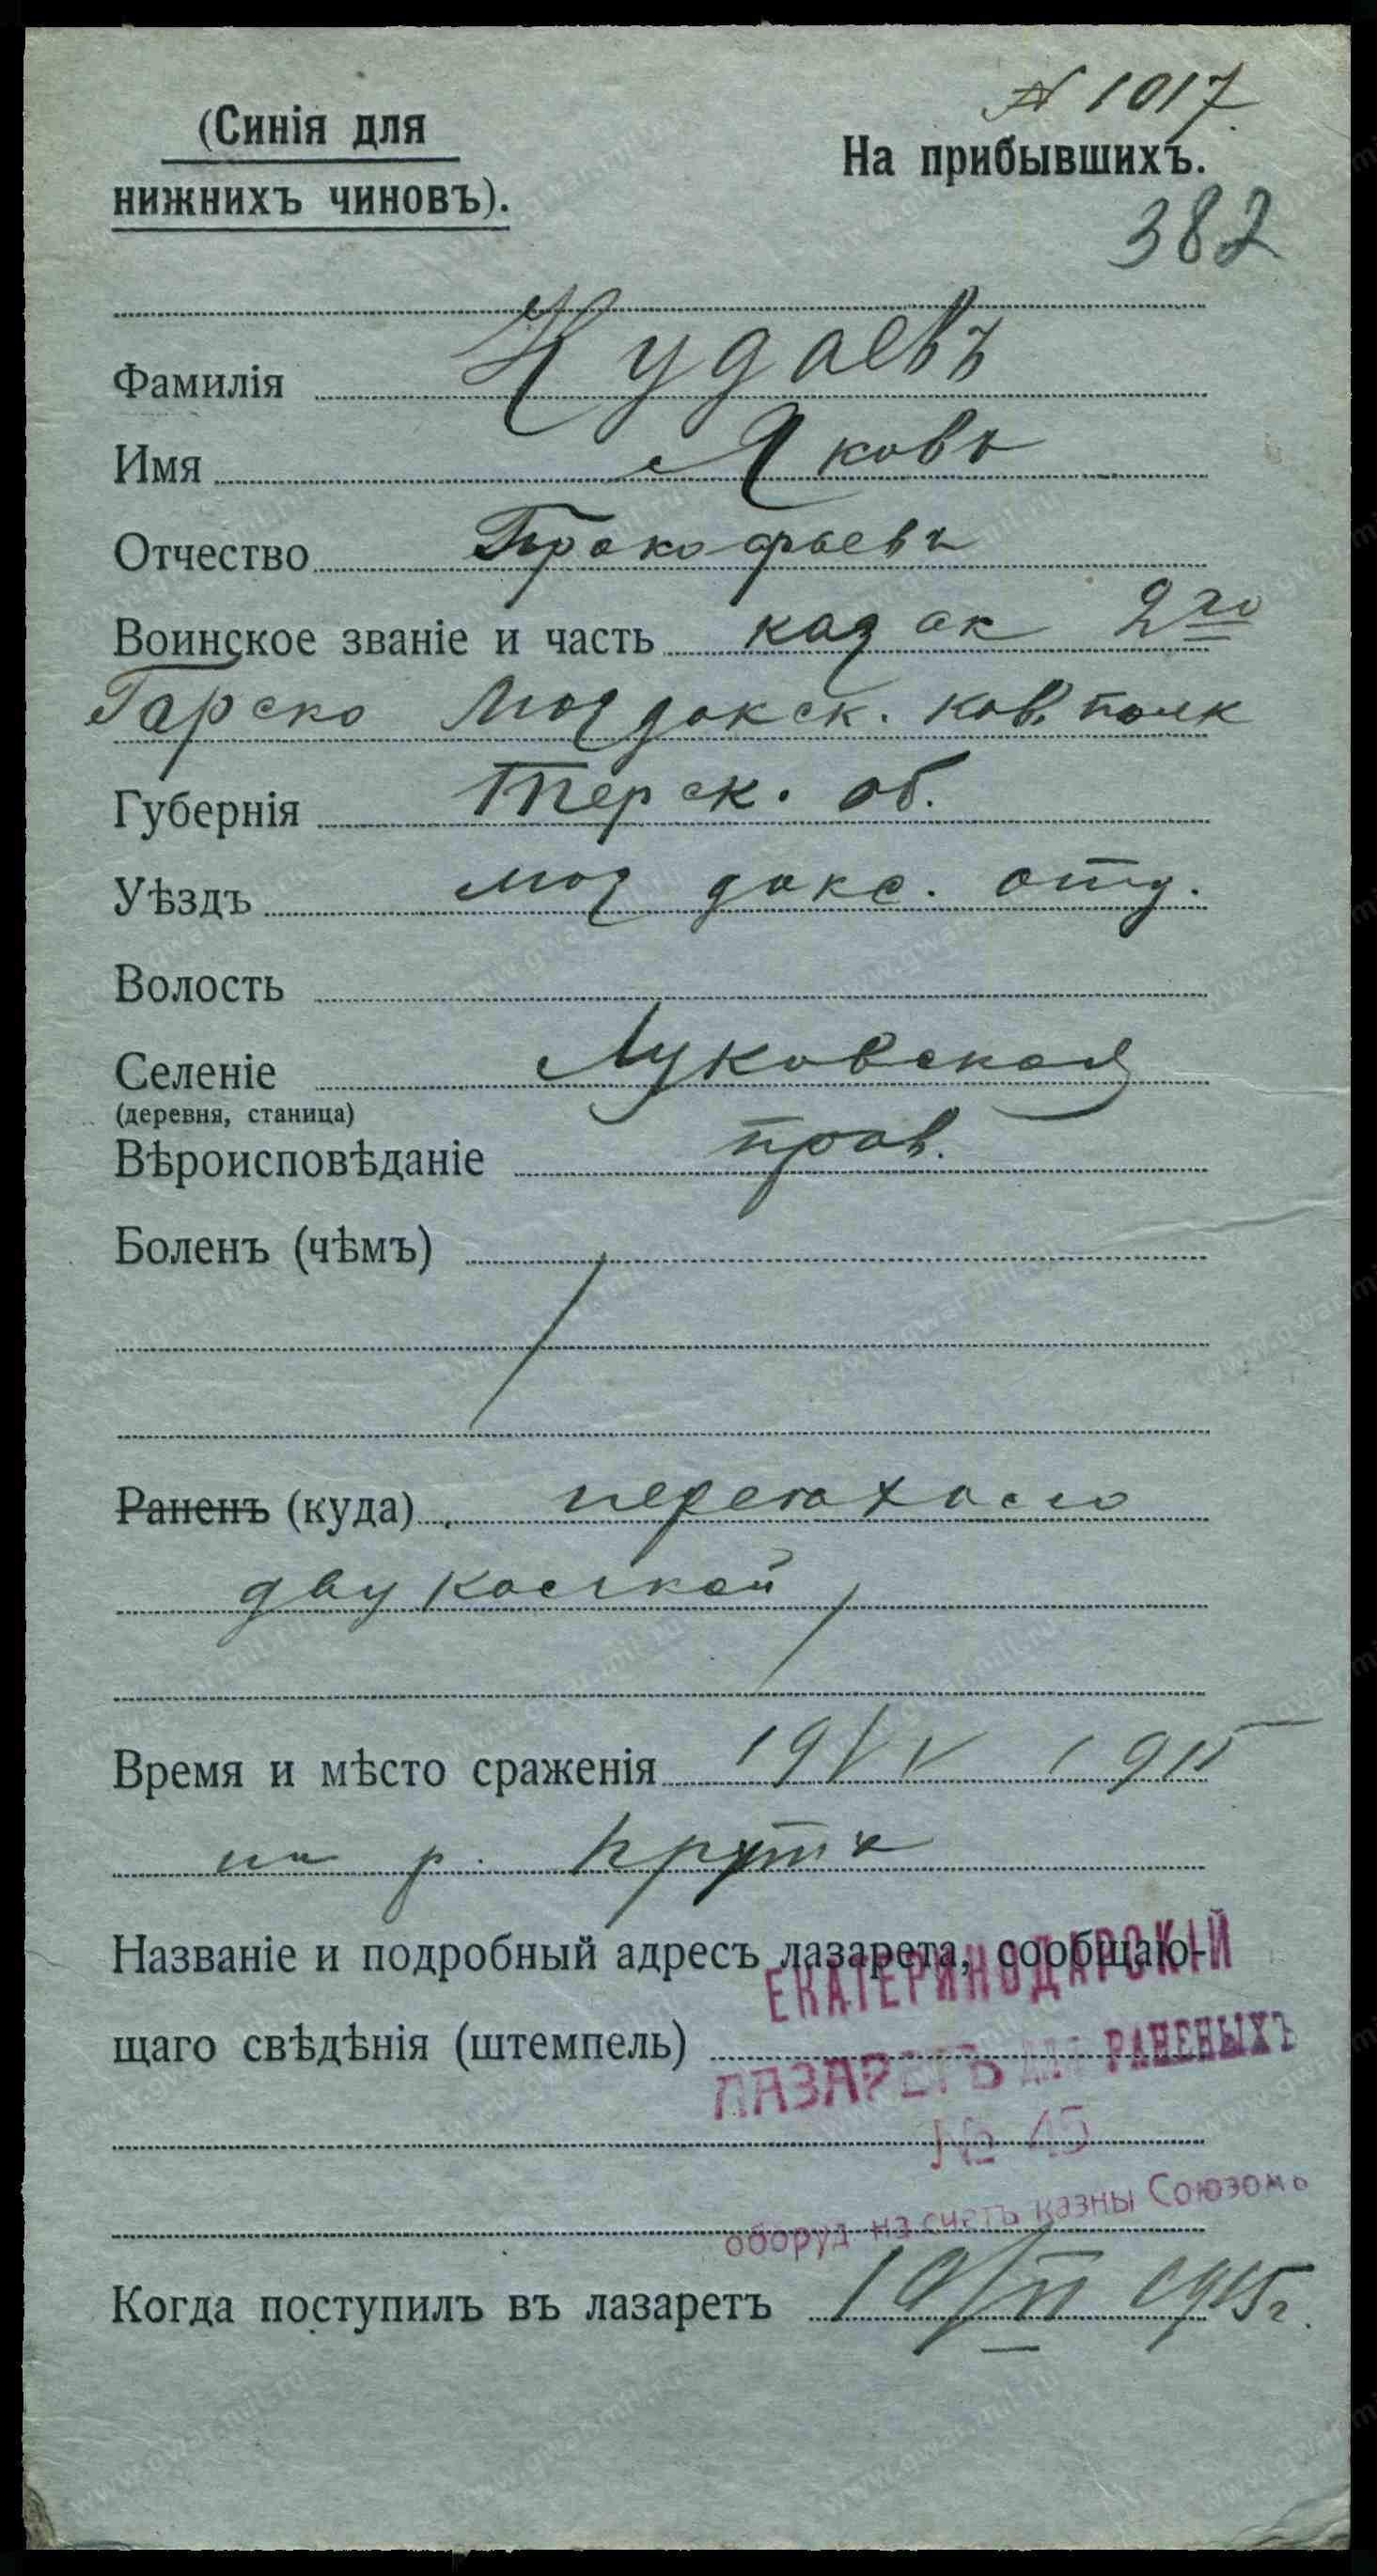 № 1017
(Синія для
нижнихъ чиновъ).
На прибывшихъ.
382
Фамилія Кудаевъ
Имя Яковъ
Отчество Прокофьевъ
Воинское званіе и часть казак 2го
Гарско Моздокск. кав. полк
Губернія Терск. об.
Уѣздъ мозդокс. отд.
Волость
Селеніе Луковская
(деревня, станица)
Вѣроисповѣданіе прав.
Боленъ (чѣмъ)
Раненъ (куда) переехало
двуколкой
Время и мѣсто сраженія 19/V 1915
на р. Пруте
Названіе и подробный адресъ лазарета, сообщаю-
щаго свѣдѣнія (штемпель)
ЕКАТЕРИНОДАРСКІЙ
ЛАЗАРЕТЪ для РАНЕНЫХЪ
№ 45
оборуд на счетъ казны Союзомъ
Когда поступилъ въ лазаретъ 19/VI 1915 г.
www.gwar.mil.ru